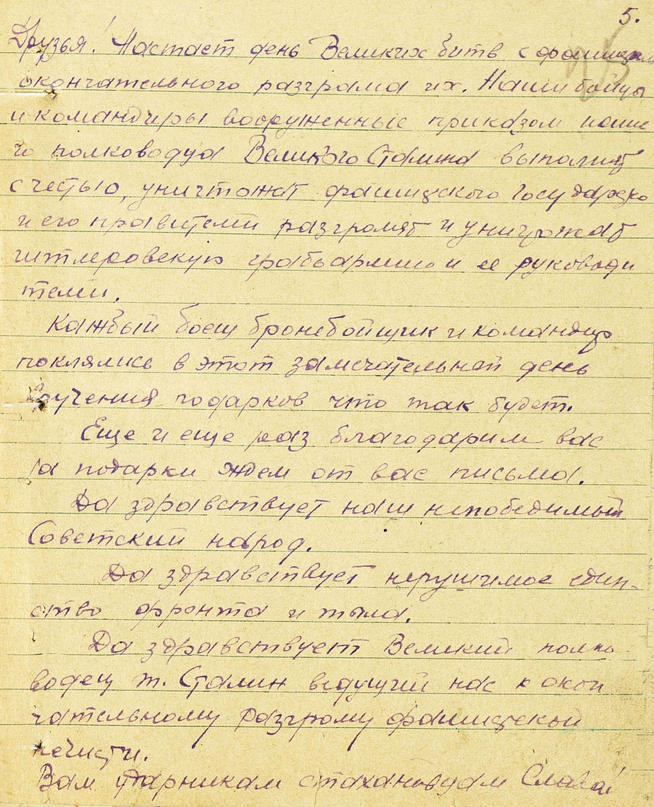 5.
Друзья! Настает день Великих битв с фашизмом
окончательного разгрома их. Наши бойцы
и командиры вооруженные приказом наше
го полководца Великого Сталина выполнят
с честью, уничтожат фашизского государство
и его правители разгромят и уничтожат
гитлеровскую грабьармию и ее руководи
тели.
Каждый боец бронебойщик и командир
поклялись в этот замечательный день
вручения подарков что так будет.
Еще и еще раз благодарим вас
за подарки ждем от вас письма.
Да здравствует наш непобедимый
Советский народ.
Да здравствует нерушимое един-
ство фронта и тыла.
Да здравствует Великий полко
водец т. Сталин ведущий нас к окон
чательному разгрому фашистской
нечисти.
Вам ударникам стахановцам Слава!